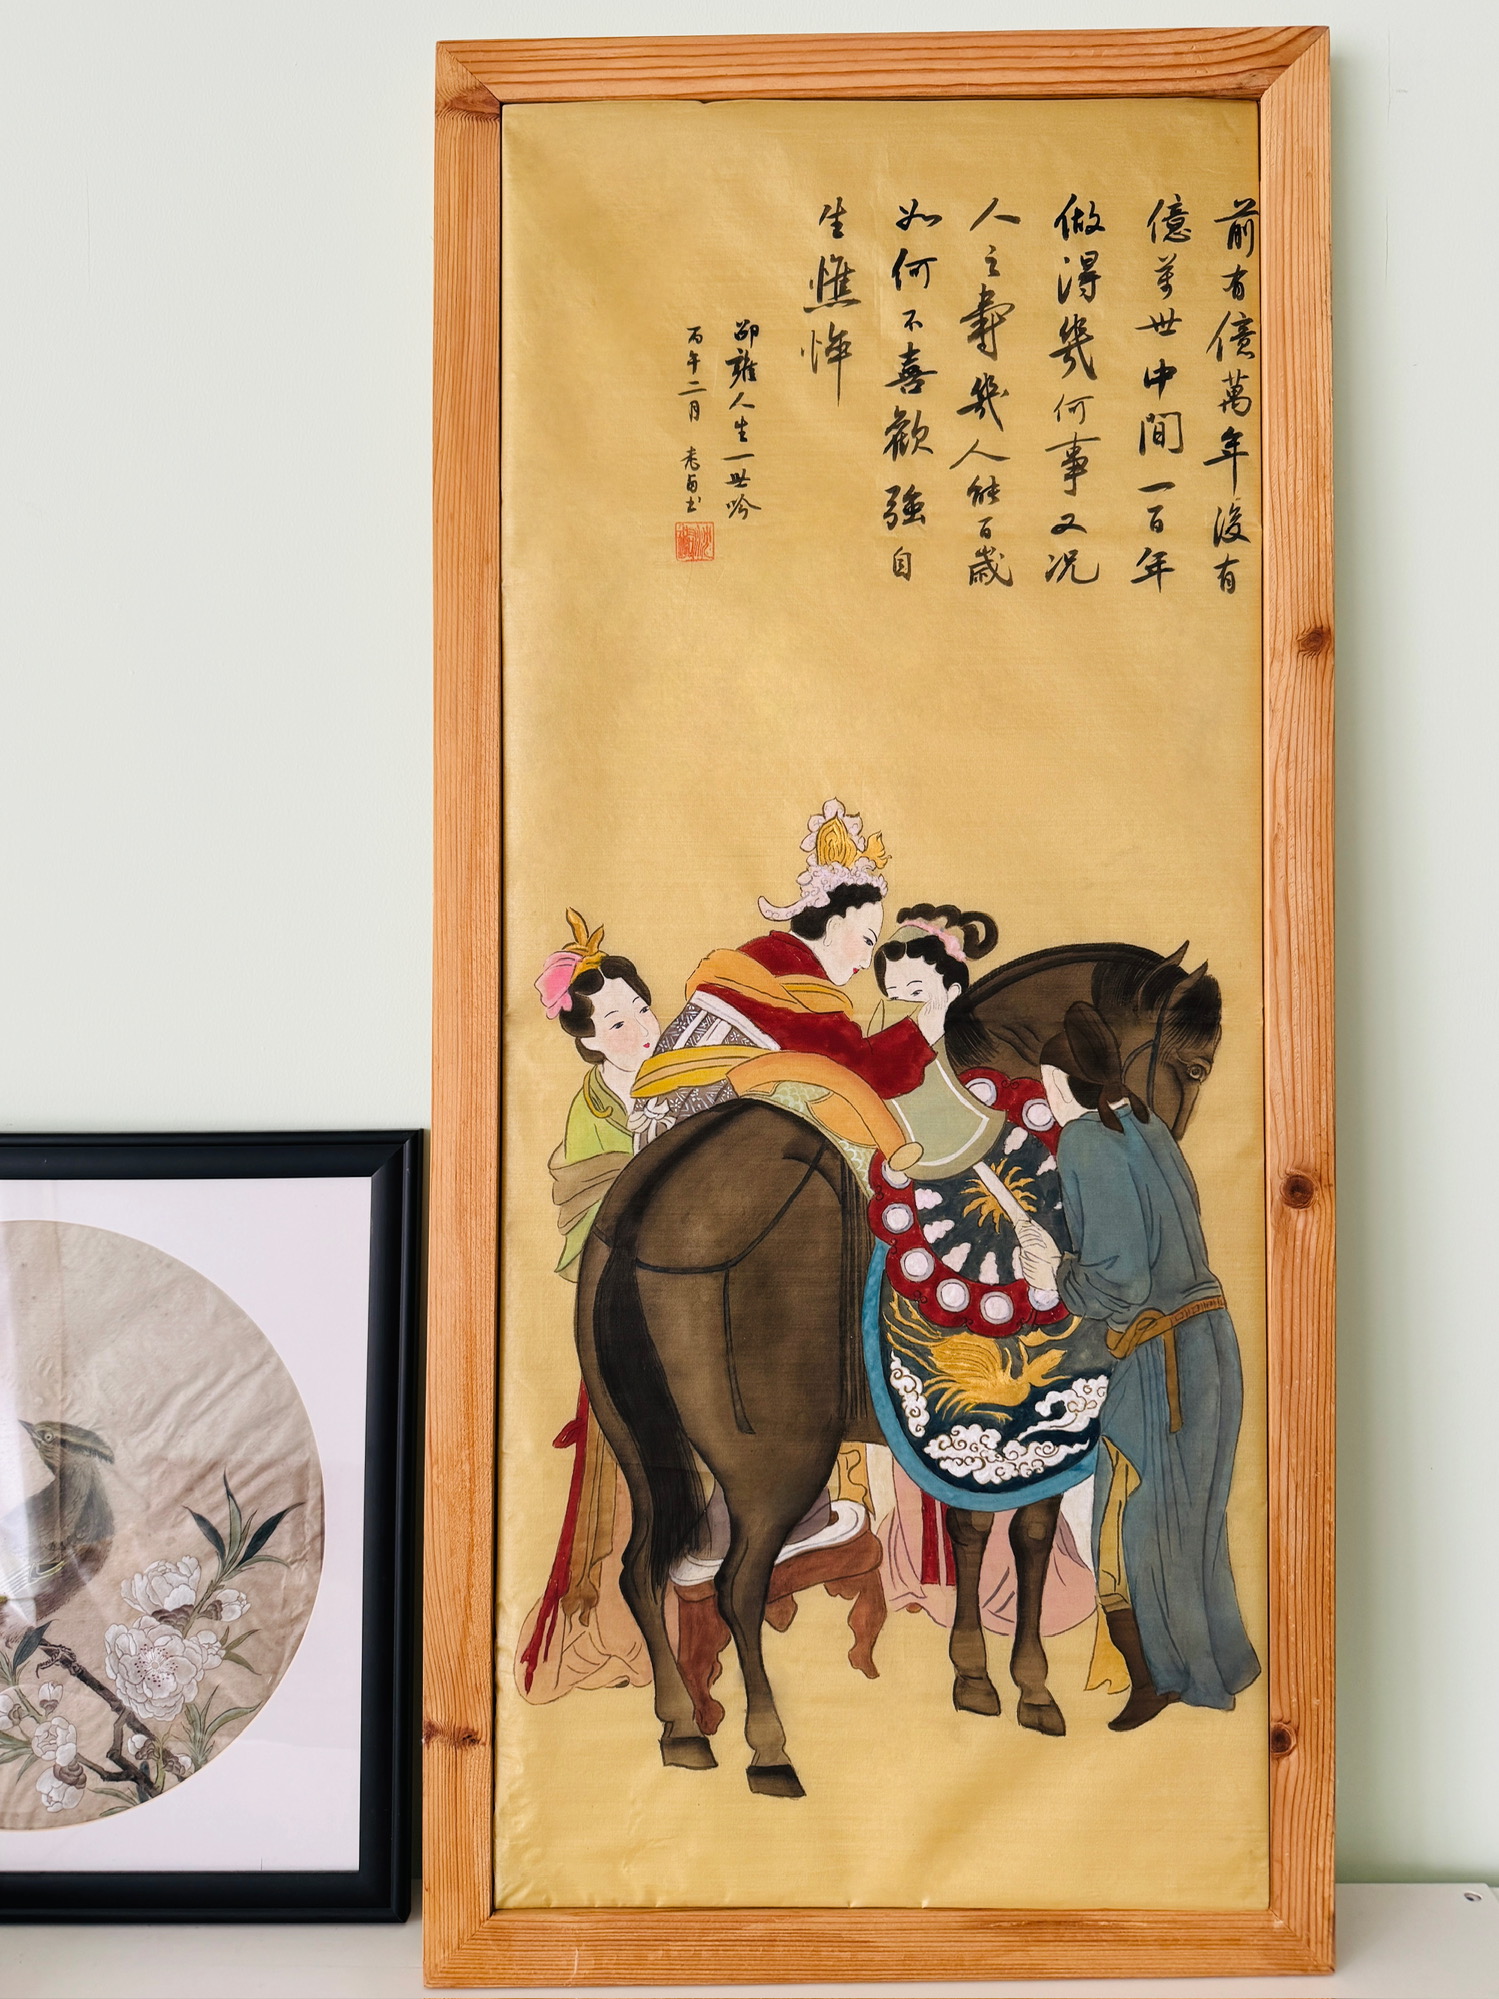 前有億萬年後有
億万世中間一百年
做得幾何事又況
人之壽幾人能百歲
如何不喜歡強自
生憔悴
邵雍人生一世吟
丙午二月